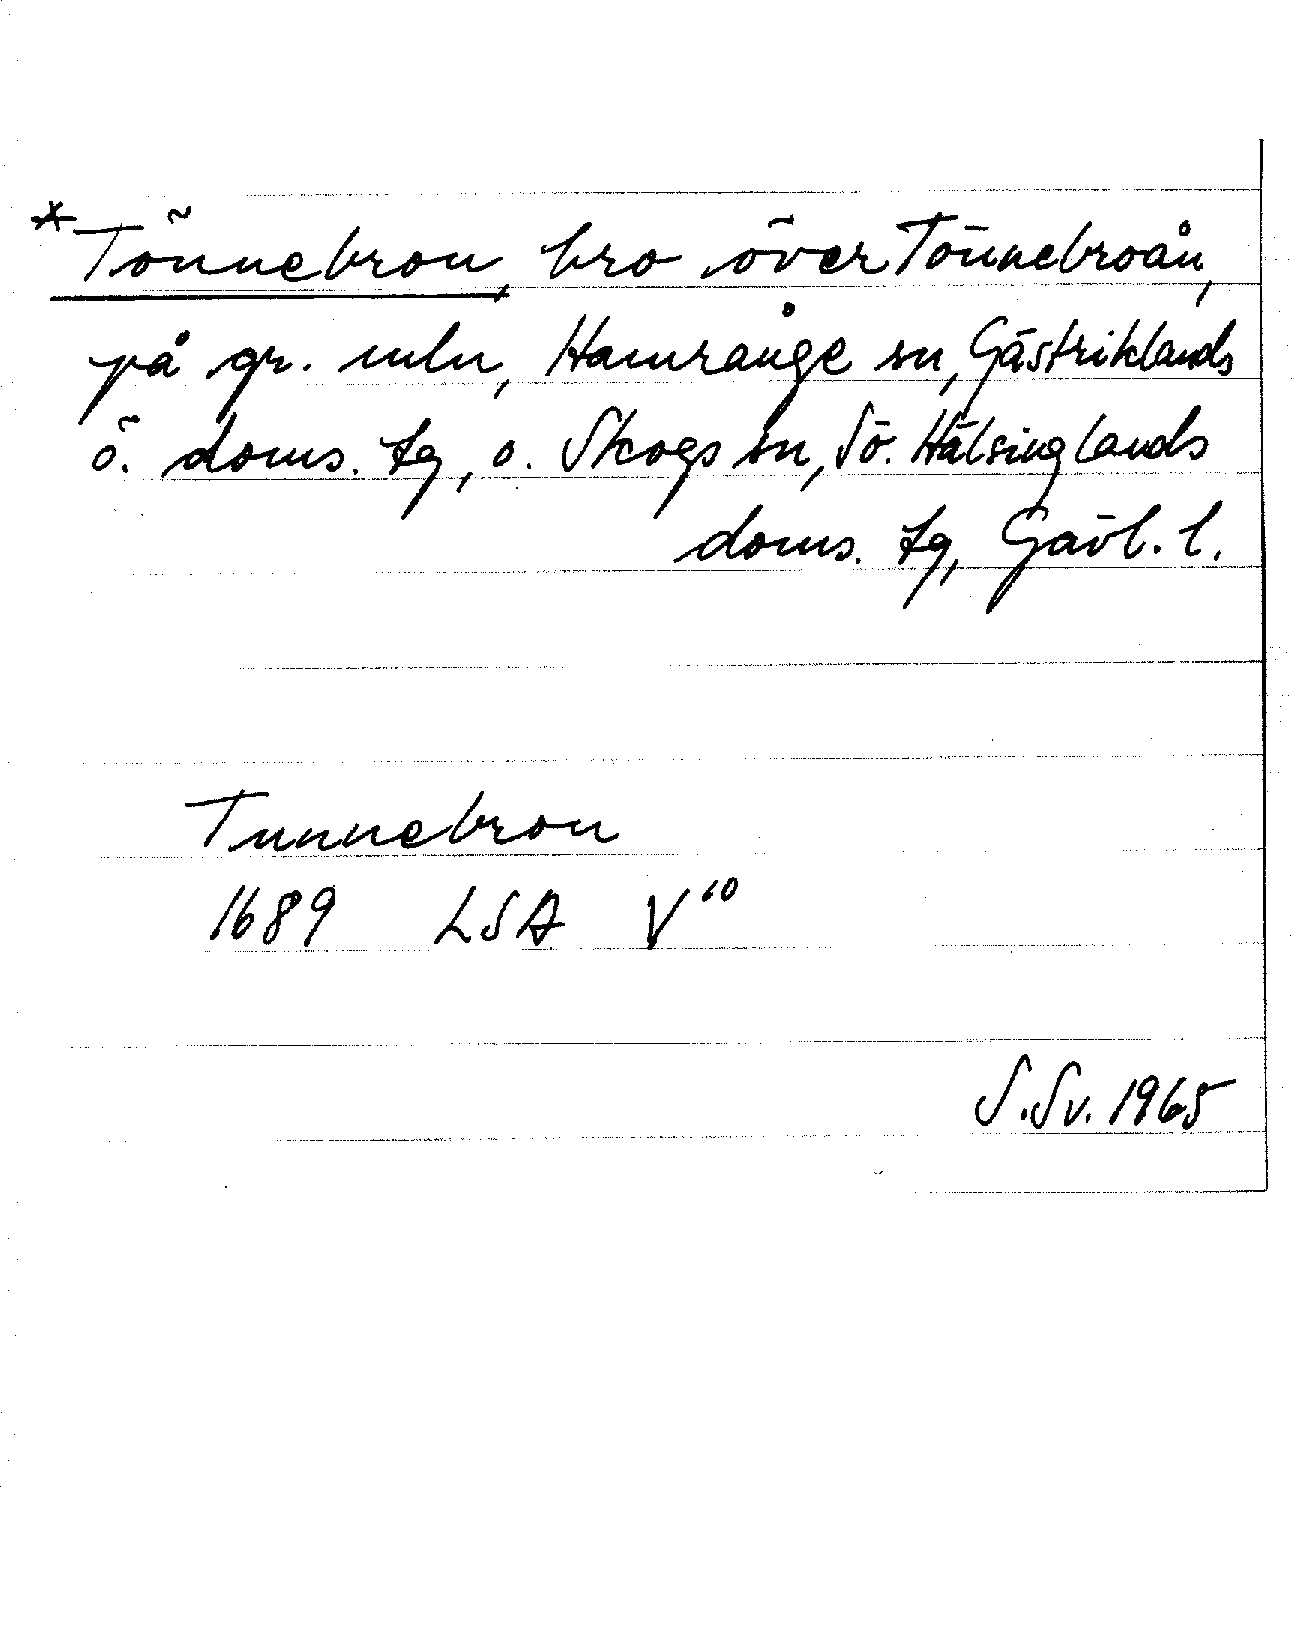 *Tönnebron, bro över Tönnebroån,
på gr. mln, Hamrånge sn, Gästriklands
ö. doms. tg, o. Skogs sn, Sö. Hälsinglands
doms. tg, Gävl. l.
Tunnebron
1689 LSA V¹⁰
S. Sv. 1965